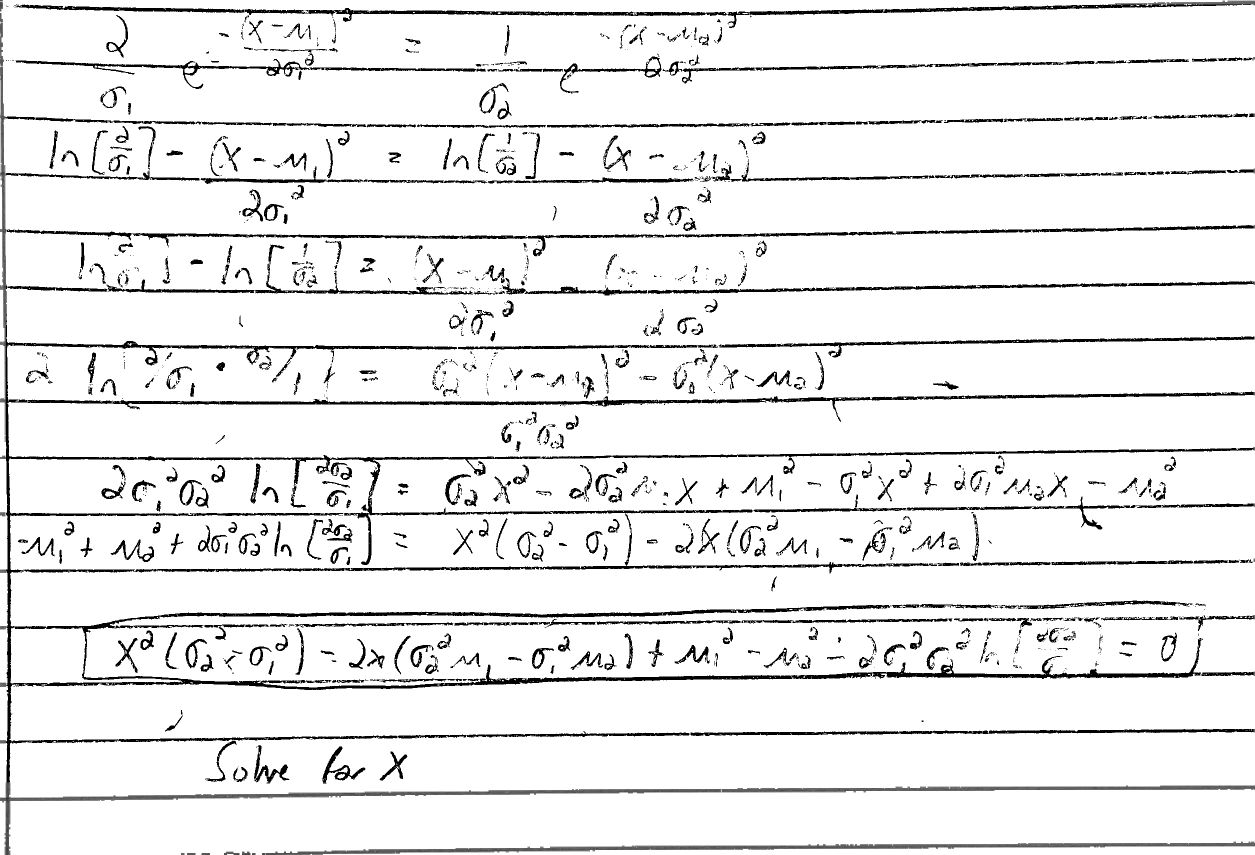 2/σ₁ e^(-(x-μ₁)²/2σ₁²) = 1/σ₂ e^(-(x-μ₂)²/2σ₂²)
ln[2/σ₁] - (x-μ₁)²/2σ₁² = ln[1/σ₂] - (x-μ₂)²/2σ₂²
ln[2/σ₁] - ln[1/σ₂] = (x-μ₁)²/2σ₁² - (x-μ₂)²/2σ₂²
2 ln[2/σ₁ · σ₂/1] = (σ₂²(x-μ₁)² - σ₁²(x-μ₂)²)/σ₁²σ₂²
2σ₁²σ₂² ln[2σ₂/σ₁] = σ₂²x² - 2σ₂²μ₁x + μ₁² - σ₁²x² + 2σ₁²μ₂x - μ₂²
-μ₁² + μ₂² + 2σ₁²σ₂² ln[2σ₂/σ₁] = x²(σ₂² - σ₁²) - 2x(σ₂²μ₁ - σ₁²μ₂)
x²(σ₂² - σ₁²) - 2x(σ₂²μ₁ - σ₁²μ₂) + μ₁² - μ₂² - 2σ₁²σ₂² ln[2σ₂/σ₁] = 0
Solve for x